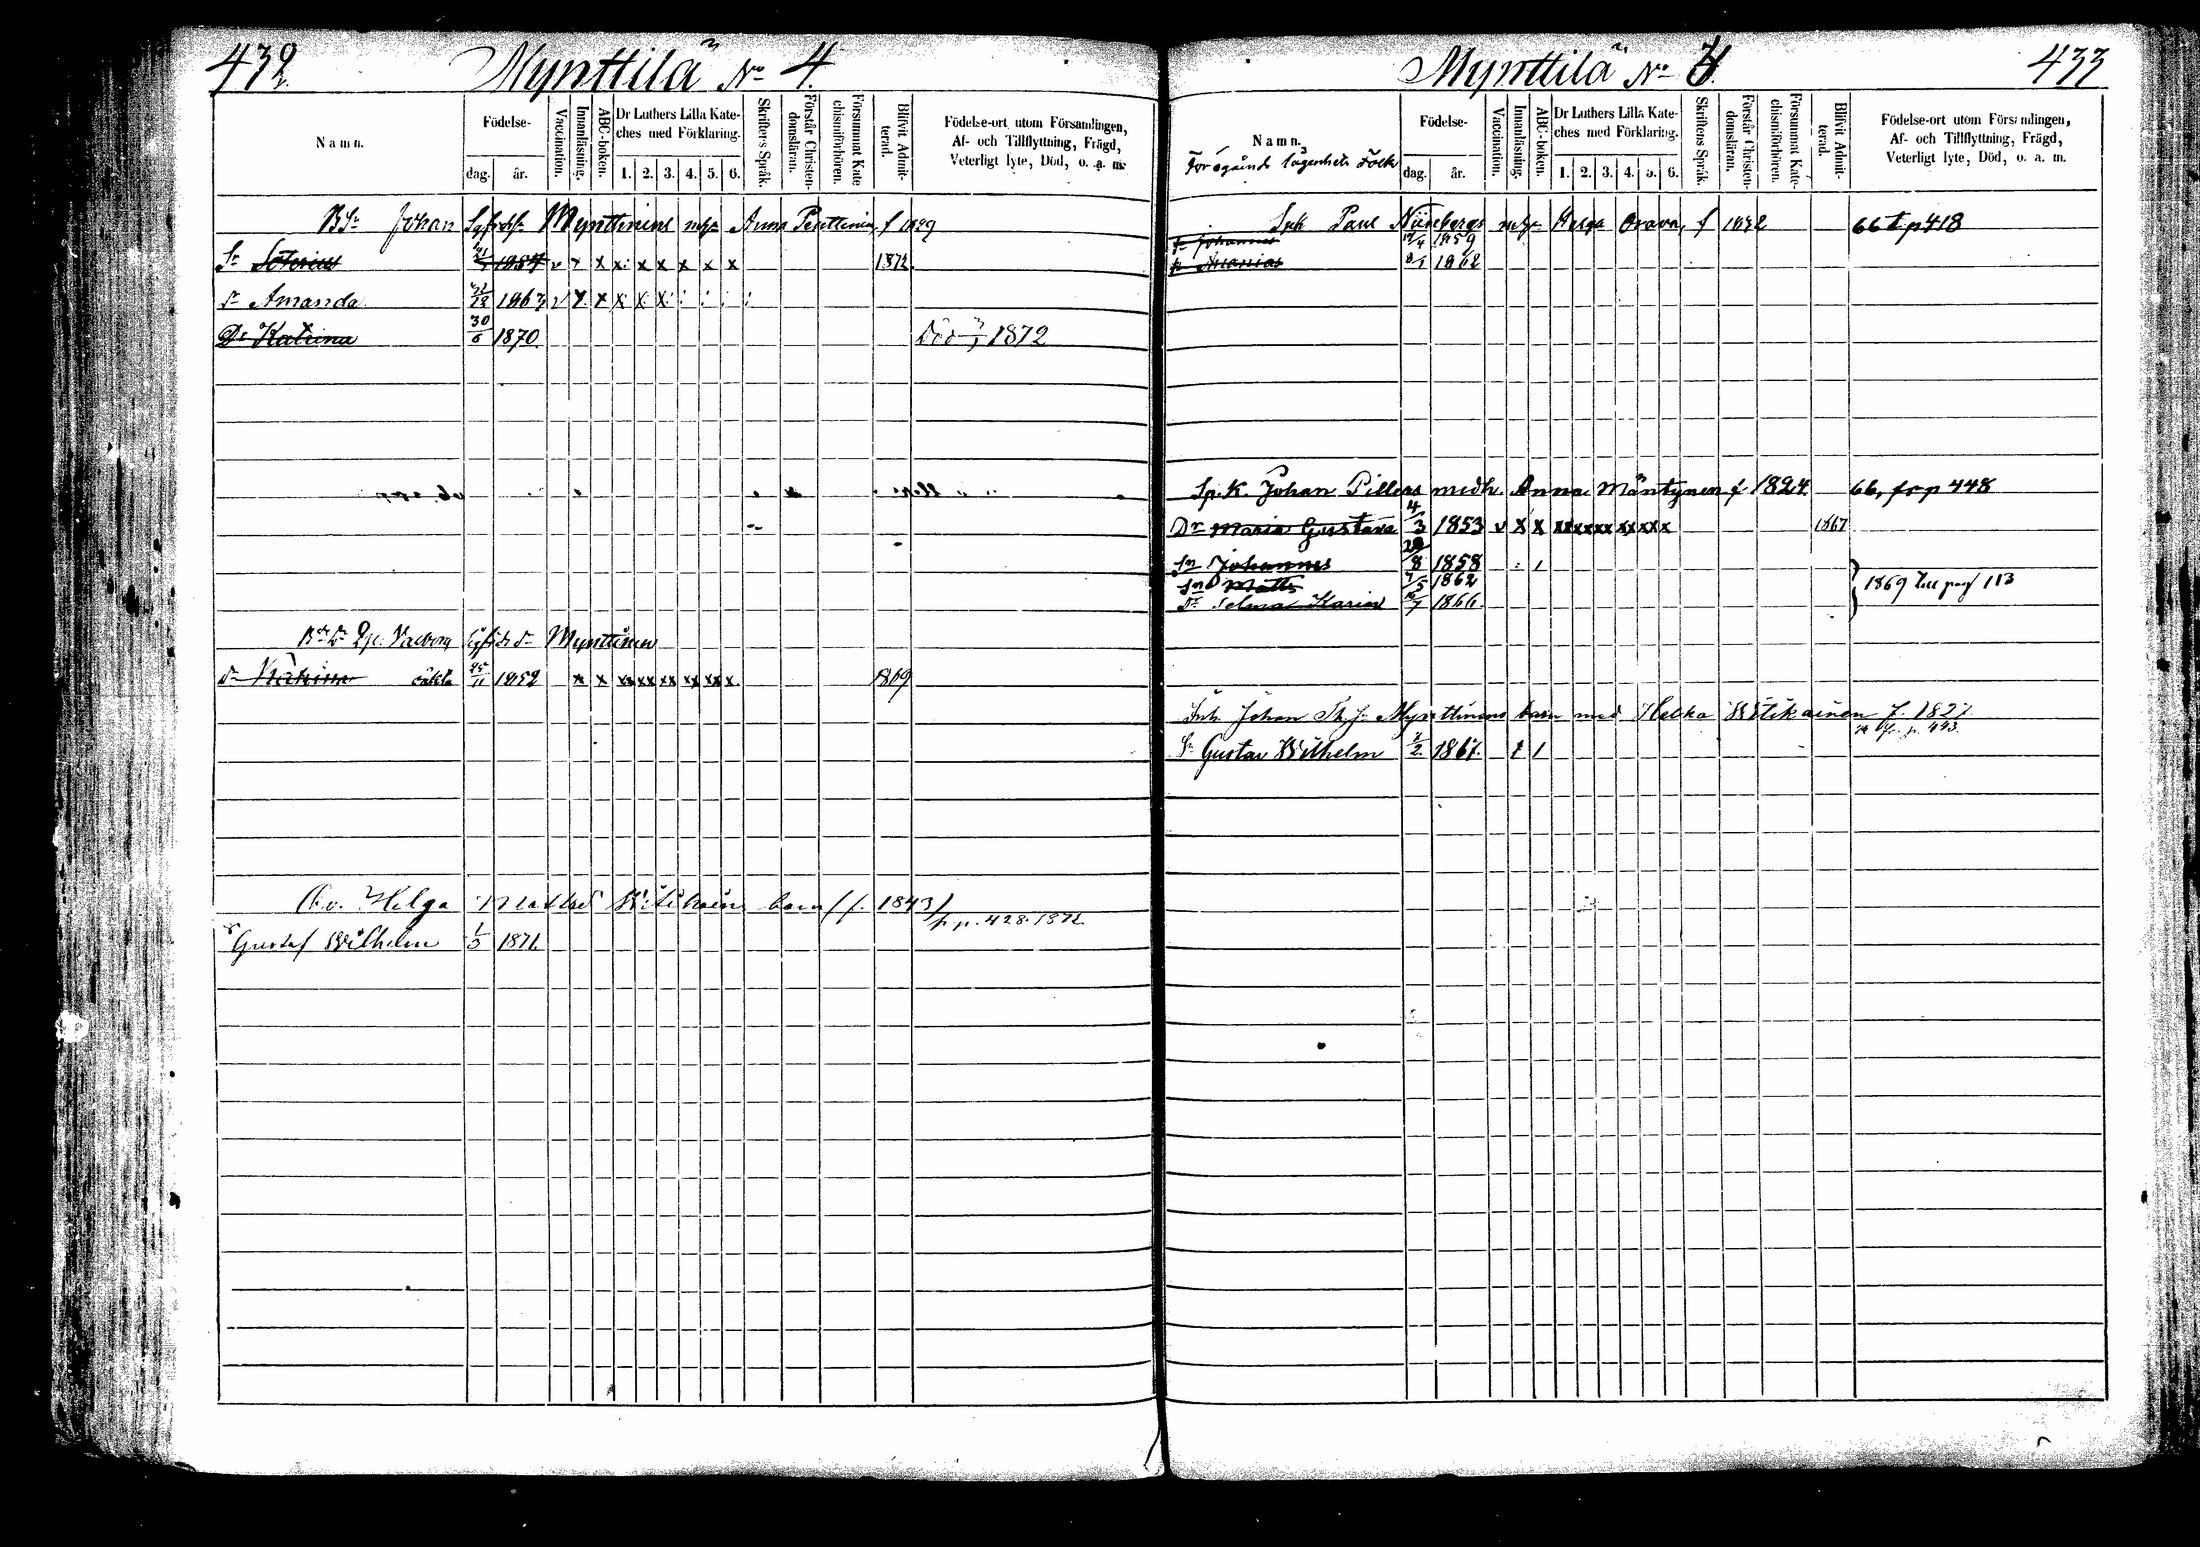 432. Mynttilä No 4.
Namn.
Födelse-
dag.
år.
Vaccination.
Innanläsning.
ABC-boken.
Dr Luthers Lilla Kate-
ches med Förklaring.
1. 2. 3. 4. 5. 6.
Skriftens Språk.
Förstår Christen-
domsläran.
Försummat Kate
chismiförhören.
Blifvit Admit-
terad.
Födelse-ort utom Församlingen,
Af- och Tillflyttning, Frägd,
Veterligt lyte, Död, o. a. m.
Johan Mynttinens Anna Penttinen f
Sn 1872.
dr Amanda 1867 v x x x x x
Dr Katrina 30/6 1870. Död 1872
Mynttinen
dr oäkta 1852 x x xx xx xx xx x 1869
Helga barn (f. 1843)
p. 428. 1872
Gustaf Wilhelm 1871.
Mynttilä No 4. 433
Namn.
lägenhets Folk
Födelse-
dag.
år.
Vaccination.
Innanläsning.
ABC-boken.
Dr Luthers Lilla Kate-
ches med Förklaring.
1. 2. 3. 4. 5. 6.
Skriftens Språk.
Förstår Christen-
domsläran.
Försummat Kate-
chismiförhören.
Blifvit Admit-
terad.
Födelse-ort utom Församlingen,
Af- och Tillflyttning, Frägd,
Veterligt lyte, Död, o. a. m.
Paul Helga Orava, f 66 t p 418
Johannes 1859
Ananias 1862
Sp.K. Johan Pillers medh. Anna Mäntynen f 1824. 66, fr p 448
Dr Maria Gustava 4/3 1853 v x x xx xx xx xx xx x 1867
Sn Johannes 1858
Sn Matts 1862
1869 till pag 113
Dr Selma Karin 1866.
Inh. Johan Mynttinens barn med Helka f. 1827
p. 443.
Sn Gustav Wilhelm 1867.